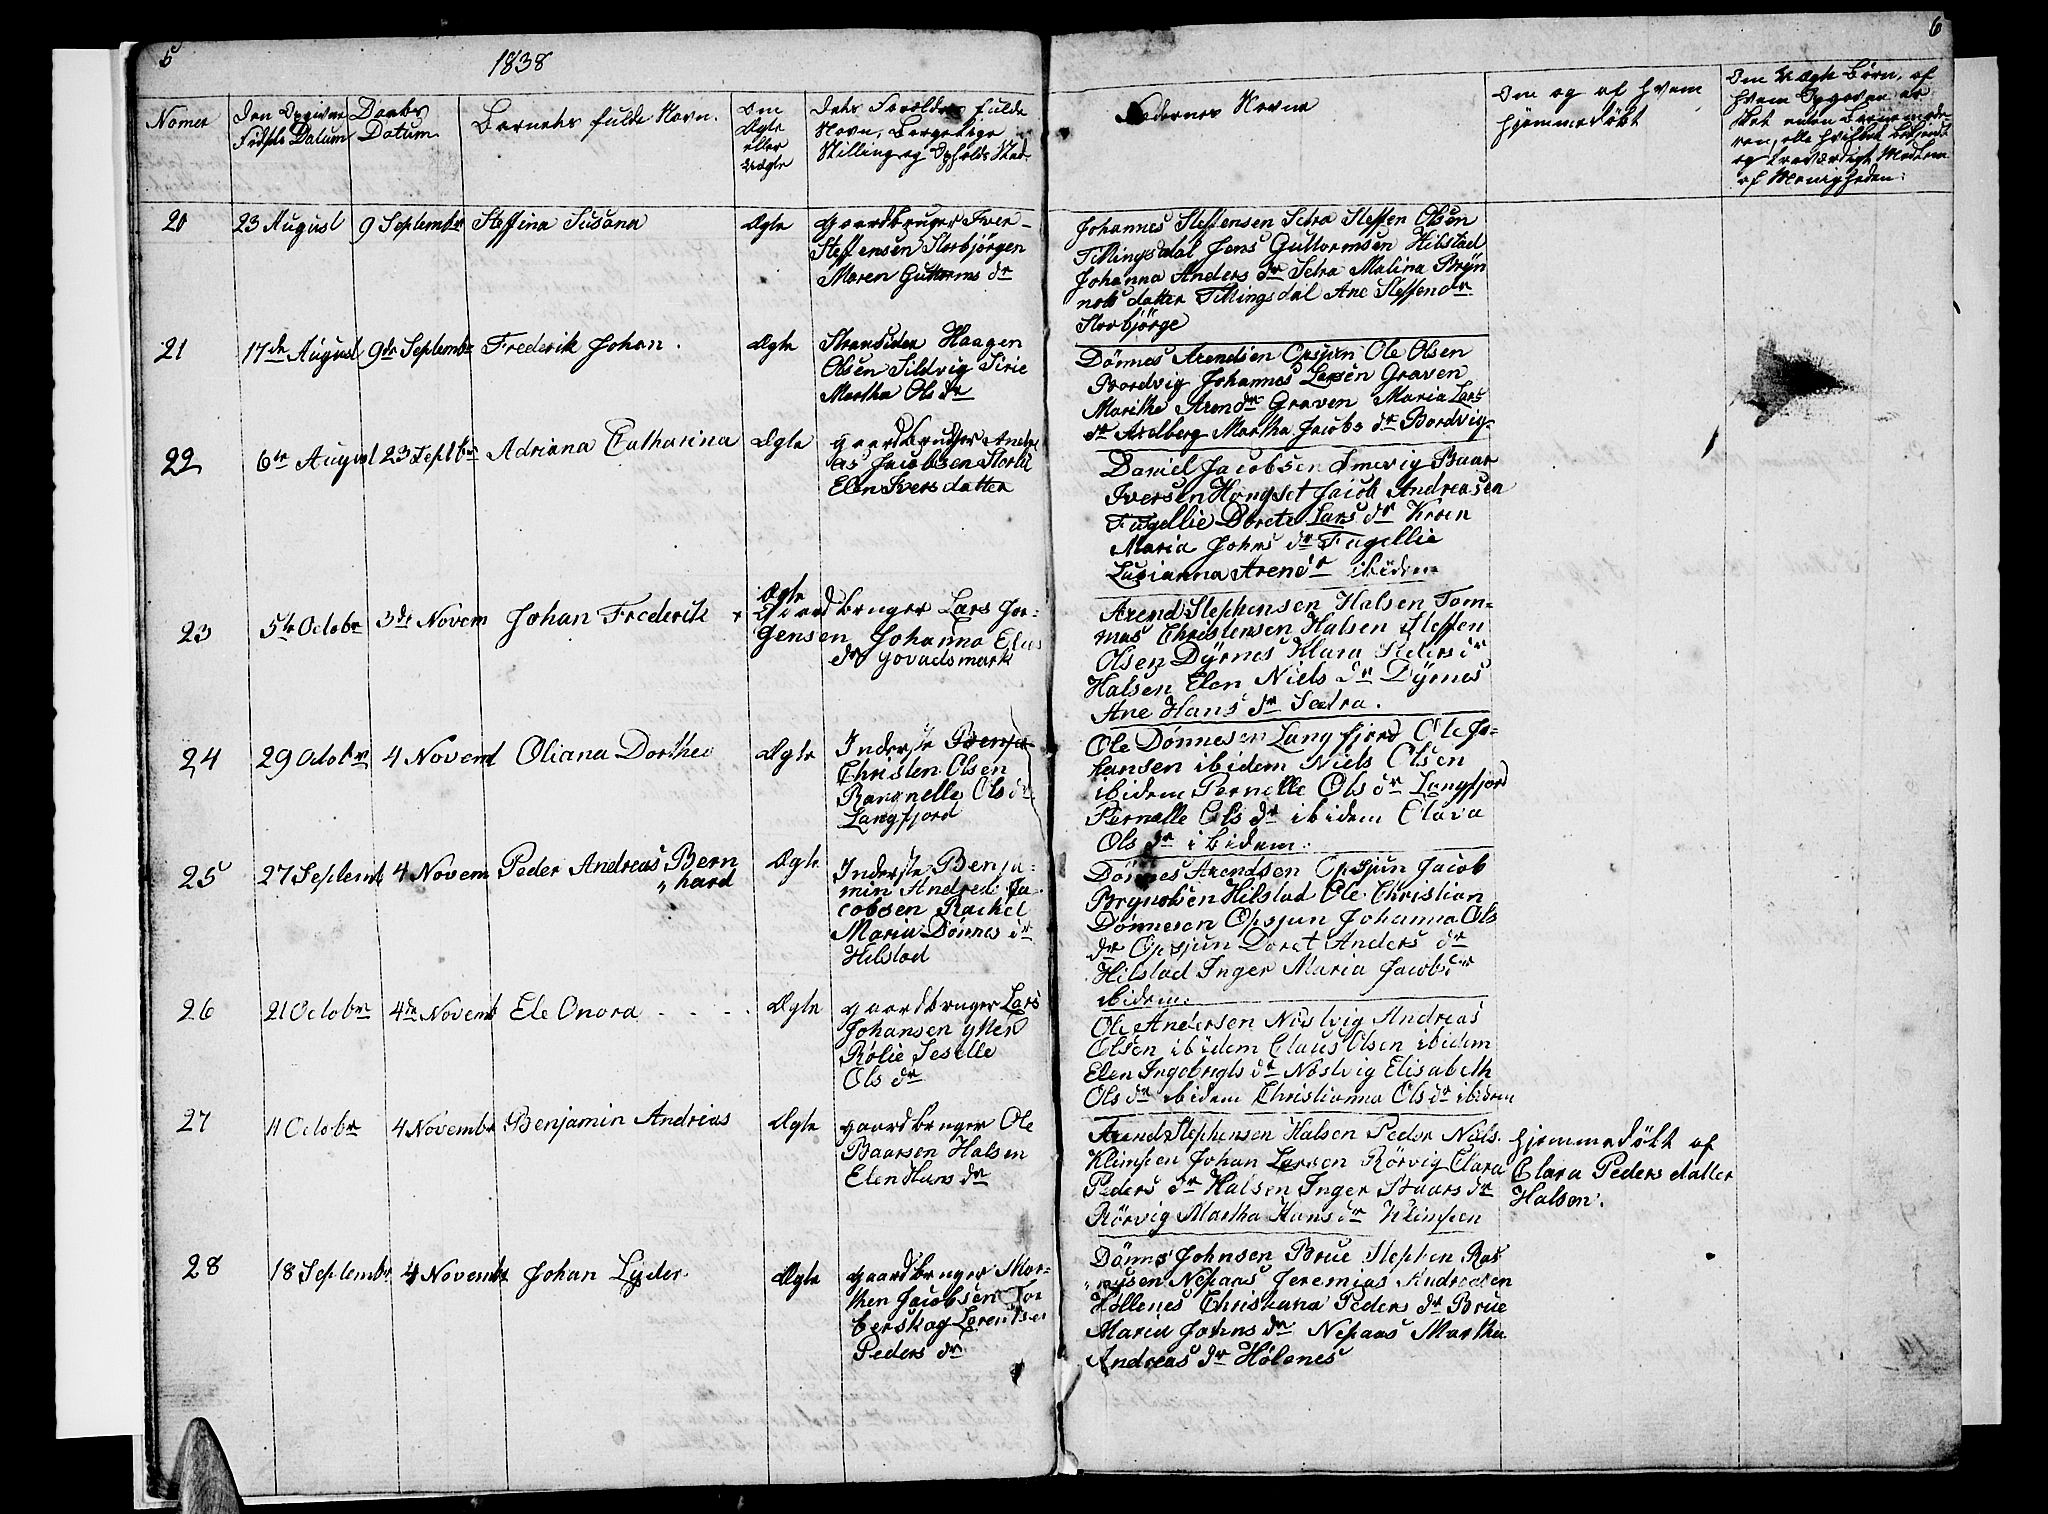 5
1838
6
Nomer
Den Opgivne
Fødsels Datum
Daabs
Datum
Barnets fulde Navn.
Om
Ægte
eller
Uægte
Dets Forældres fulde
Navn, Borgerlige
Stilling og Opholds Sted
Faddernes Navne
Om og af hvem
hjemmedøbt
Om Uægte Børn, af
hvem Opgaven er
sket enten Barnemode-
ren, elle hvilket bekjendt
og troværdigt Medlem
af Menigheden.
20
23 August
9 Septembr
Steffina Susana
Ægte
gaardbruger Iver
Steffensen Storbjörgen
Maren Guttorms dr
Johannes Steffensen Setra Steffen Olsen
Tillingsdal Jens Guttormsen Hilstad
Johanna Anders dr Setra Malina Bryn
nols datter Tillingsdal Ane Steffen dr
Storbjörge
21
17de August
9de Septembr
Frederik Johan.
Ægte
Strandsiden Haagen
Olsen Sildvig Sirie
Martha Ols dr
Dönnes Arendsen Opsjøn Ole Olsen
Bordvig Johannes Larsen Graven
Marithe Arendr Graven Maria Lars
dr Aedberg Martha Jacobs dr Bordvig
22
6te August
23 Septbr
Adriana Catharina
Ægte
gaardbruger Andre
as Jacobsen Storlie
Elen Ivers datter
Daniel Jacobsen Smevig Baar
Iversen Hongset Jacob Andreasen
Fugellie Dorete Lars dr Kroen
Maria Johns dr Fugellie
Lusianna Arendr ibidem
23
5te Octobr
3de Novem
Johan Frederik
Ægte
Gaardbruger Lars Jør-
gensen Johanna Elias
dr govadsmark
Arend Stephensen Halsen Tom-
mas Christensen Halsen Steffen
Olsen Dÿrnes Klara Peders dr
Halsen Elen Niels dr Dÿrnes
Ane Hans dr Sætra.
24
29 Octobr
4 Novemt
Oliana Dorthea
Ægte
Inderste
Christen Olsen
Rangnelle Ols dr
Langfjord
Ole Dønnesen Langfjord Ole Jo-
hansen ibidem Niels Olsen
ibidem Pernelle Ols dr Langfjord
Pernelle Ols dr ibidem Clara
Ols dr ibidem.
25
27 Septemb
4 Novem
Peder Andreas Bern
„ hard
Ægte
Inderste Benja-
min Andreas Ja-
cobsen Rachel
Maria Dønnes dr
Hilstad
Dönnes Arendsen Opsjun Jacob
Brynolsen Hilstad Ole Christian
Dønnesen Opsjun Johanna Ols
dr Opsjun Doret Anders dr
Hilstad Inger Maria Jacobs dr
ibidem.
26
21 Octobr
4de Novemb
Ele Onora
Ægte
gaardbruger Lars
Johansen ytter
Rølie Seselle
Ols dr
Ole Andersen Nøstvig Andreas
Olsen ibidem Claus Olsen ibidem
Elen Ingebregts dr Nøstvig Elisabeth
Ols dr ibidem Christianna Ols dr ibidem
27
11 Octobr
4 Novembr
Benjamin Andrias
Ægte
gaardbruger Ole
Baarsen Halsen
Elen Hans dr
Arend Stephensen Halsen Peder Niels.
Klimpen Johan Larsen Rörvig Clara
Peders dr Halsen Inger Baars dr
Rörvig Martha Hans dr Klimpen
hjemmedøbt af
Clara Peders datter
Halsen.
28
18 Septembr
4 Novembr
Johan Lyder.
Ægte
gaardbruger Mor-
then Jacobsen Tor
berskog Lorentsen
Peders dr
Dönns Johnsen Brue Stephen Ras
„ musen Nepaas Jeremias Andreasen
Höllenes Christiana Peders dr Brue
Maria Johns dr Nepaas Martha
Andreas dr Hölenes